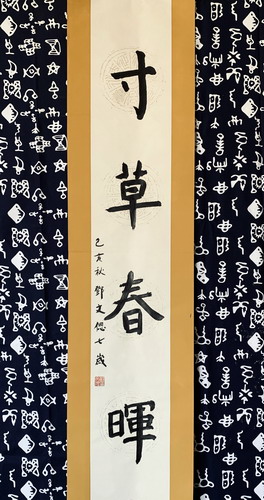 寸草春暉
己亥秋 鄧文偲七歲